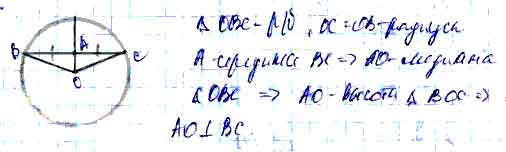 B A C
O
Δ OBC - р/б, OC = OB - радиусы
A - середина BC => AO - медиана
Δ OBC => AO - высота Δ BOC =>
AO ⊥ BC.